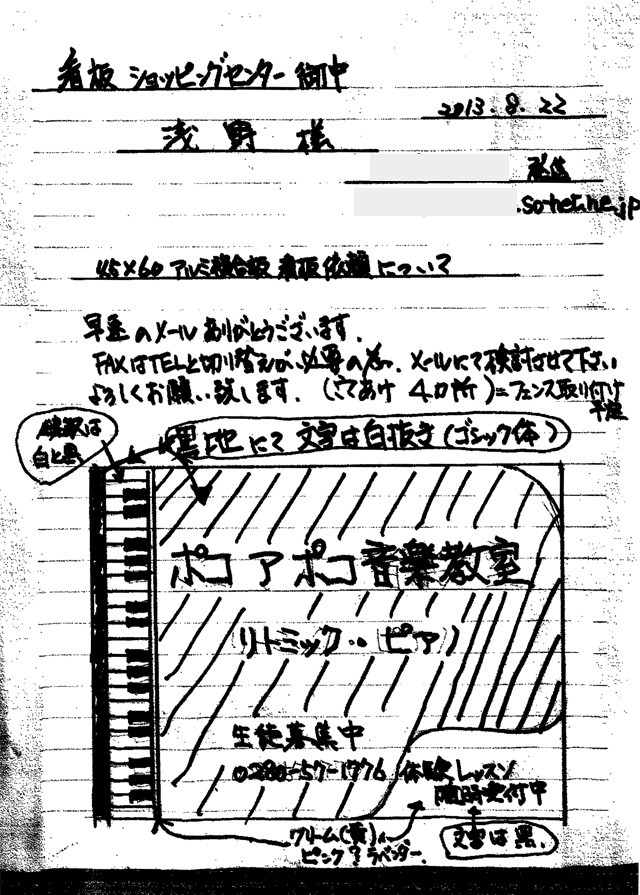 看板 ショッピングセンター 御中
2013.8.22
浅野 様
.so-net.ne.jp
45×60 アルミ複合板 看板依頼について
早速のメール ありがとうございます.
FAXはTELと切り替えが必要の為. メールにて検討させて下さい
よろしくお願い致します. (穴あけ 4カ所)=フェンス取り付け
予定
鍵盤は
白と黒
黒地にて 文字は白抜き(ゴシック体)
ポコ ア ポコ 音楽教室
リトミック・・ピアノ
生徒募集中
0280-57-1776 体験レッスン
随時受付中
クリーム(黄)
ピンク?ラベンダー.
文字は黒.